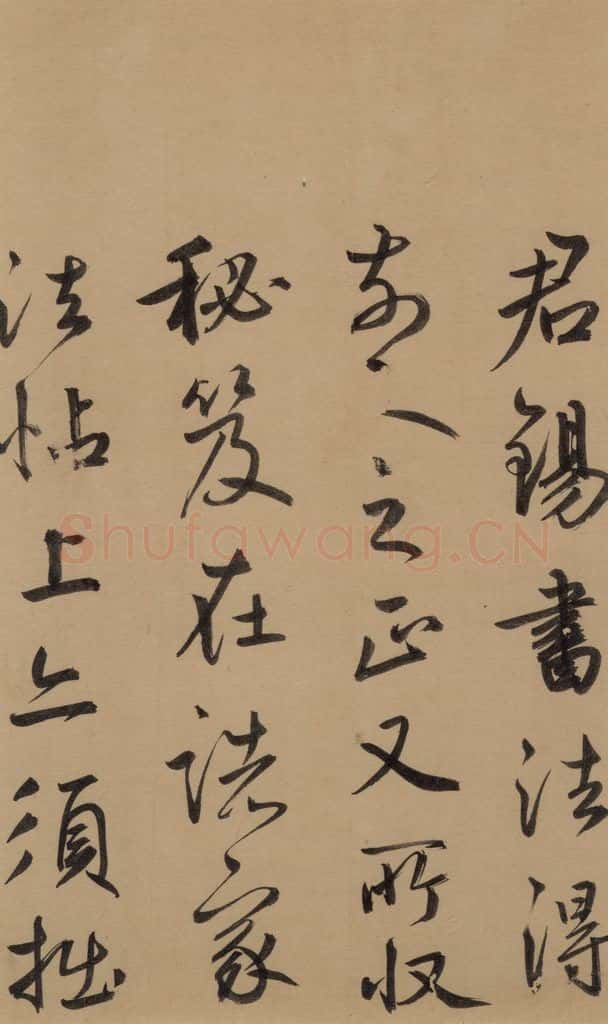 君錫書法得
前人之正又所收
秘笈在諸家
法帖上亦須拙
Shufawang.CN